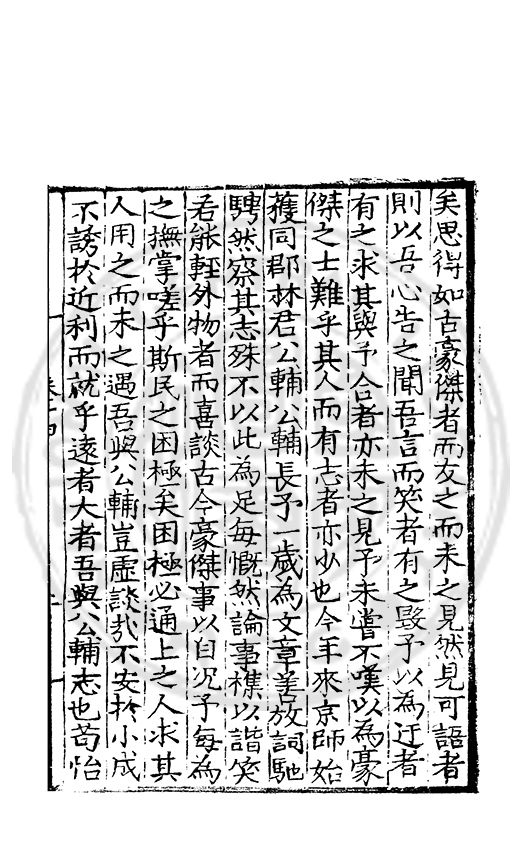 矣思得如古豪傑者而友之而未之見然見可語者
則以吾心告之聞吾言而笑者有之毀予以為迂者
有之求其與予合者亦未之見予未嘗不嘆以為豪
傑之士難乎其人而有志者亦少也今年來京師始
獲同郡林君公輔公輔長予一歲為文章善放詞馳
騁然察其志殊不以此為足每慨然論事襍以諧笑
若能輕外物者而喜談古今豪傑事以自况予每為
之撫掌嗟乎斯民之困極矣困極必通上之人求其
人用之而未之遇吾與公輔豈虛談哉不安於小成
不誘於近利而就乎遠者大者吾與公輔志也苟怡
卷十四